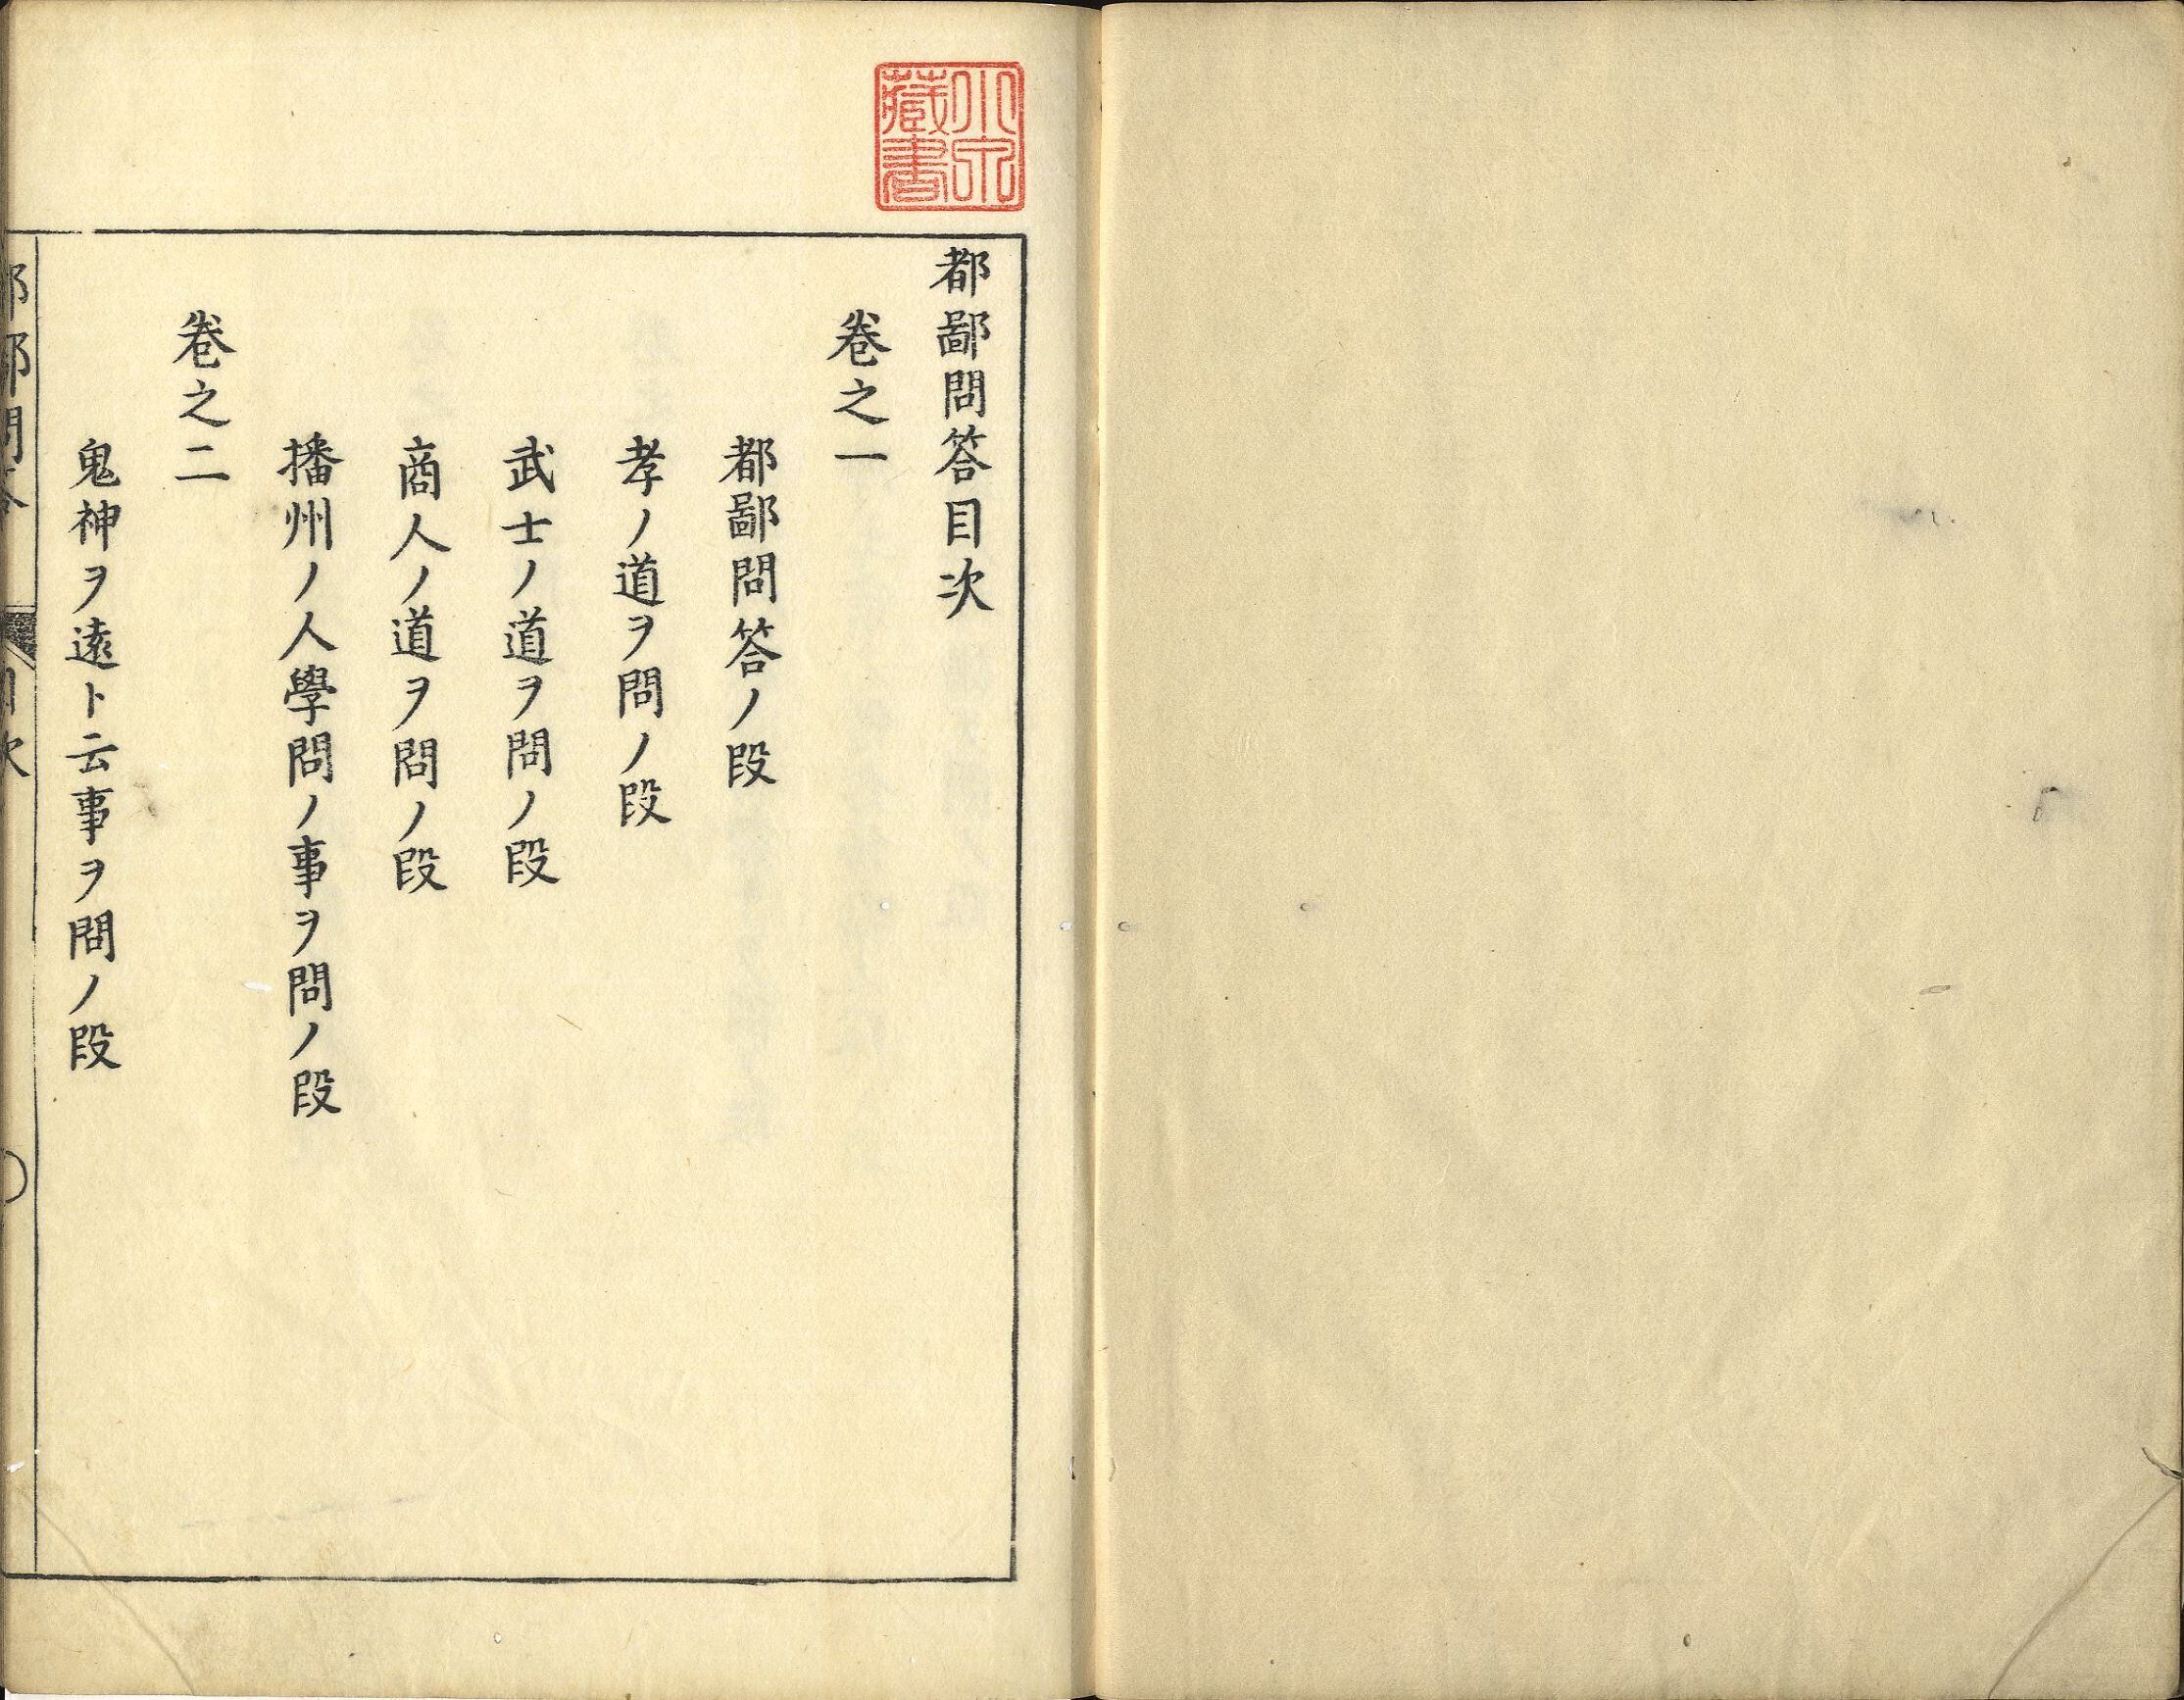 小泉藏書
都鄙問答目次
卷之一
都鄙問答ノ段
孝ノ道ヲ問ノ段
武士ノ道ヲ問ノ段
商人ノ道ヲ問ノ段
播州ノ人學問ノ事ヲ問ノ段
卷之二
鬼神ヲ遠ト云事ヲ問ノ段
都鄙問答 目次